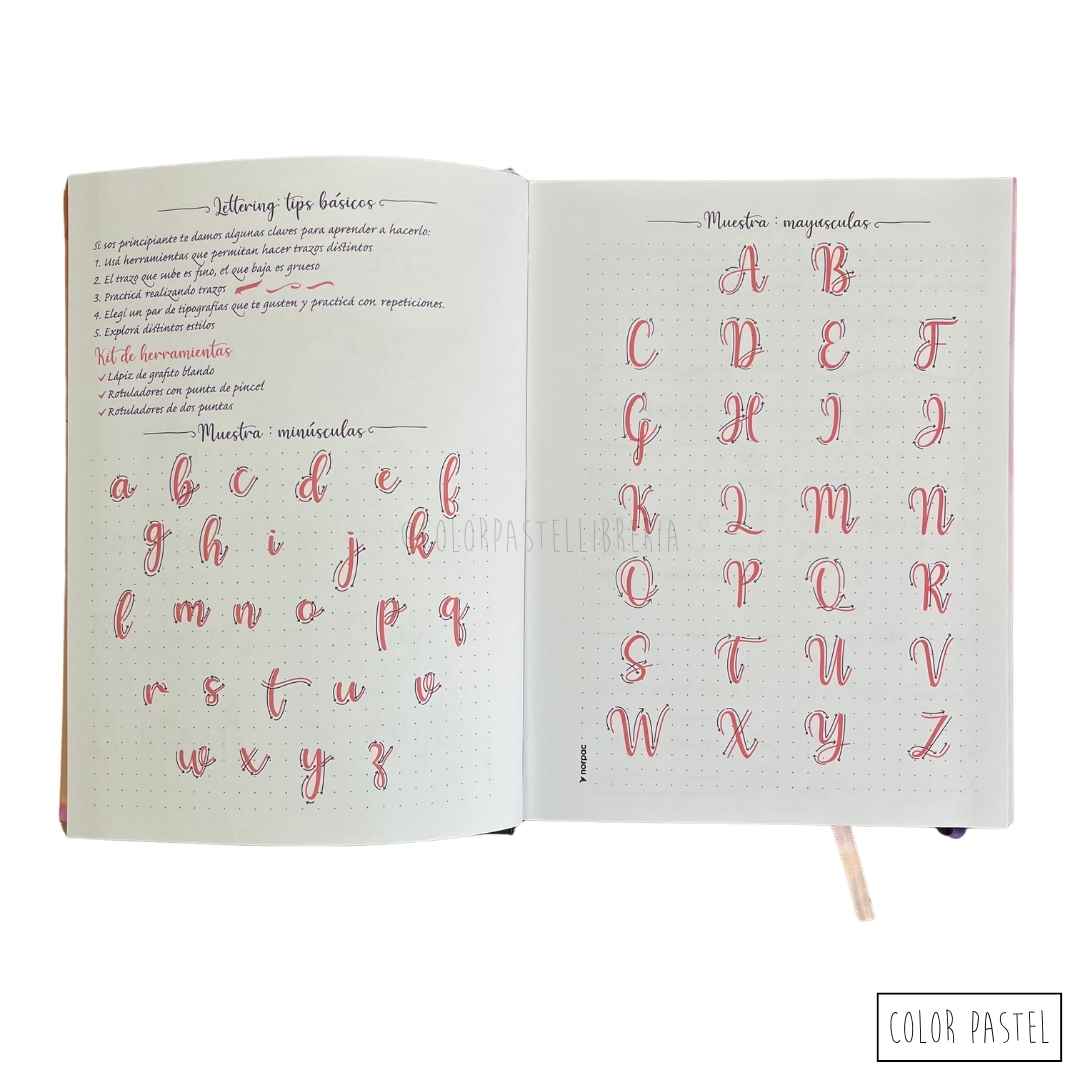 Lettering: tips básicos
Si sos principiante te damos algunas claves para aprender a hacerlo:
1. Usá herramientas que permitan hacer trazos distintos
2. El trazo que sube es fino, el que baja es grueso
3. Practicá realizando trazos
4. Elegí un par de tipografías que te gusten y practicá con repeticiones.
5. Explorá distintos estilos
Kit de herramientas
✓ Lápiz de grafito blando
✓ Rotuladores con punta de pincel
✓ Rotuladores de dos puntas
Muestra : minúsculas
a b c d e f
g h i j k
l m n o p q
r s t u v
w x y z
Muestra : mayúsculas
A B
C D E F
G H I J
K L M N
O P Q R
S T U V
W X Y Z
norpac
©COLORPASTELLIBRERIA
COLOR PASTEL